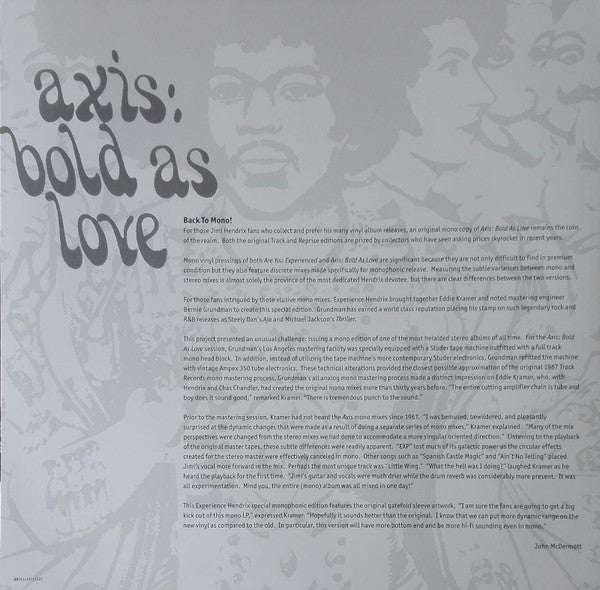 axis:
bold as
love
Back To Mono!
For those Jimi Hendrix fans who collect and prefer his many vinyl album releases, an original mono copy of Axis: Bold As Love remains the coin
of the realm. Both the original Track and Reprise editions are prized by collectors who have seen asking prices skyrocket in recent years.
Mono vinyl pressings of both Are You Experienced and Axis: Bold As Love are significant because they are not only difficult to find in premium
condition but they also feature discrete mixes made specifically for monophonic release. Measuring the subtle variances between mono and
stereo mixes is almost solely the province of the most dedicated Hendrix devotee, but there are clear differences between the two versions.
For those fans intrigued by those elusive mono mixes, Experience Hendrix brought together Eddie Kramer and noted mastering engineer
Bernie Grundman to create this special edition. Grundman has earned a world class reputation placing his stamp on such legendary rock and
R&B releases as Steely Dan's Aja and Michael Jackson's Thriller.
This project presented an unusual challenge: issuing a mono edition of one of the most heralded stereo albums of all time. For the Axis: Bold
As Love session, Grundman's Los Angeles mastering facility was specially equipped with a Studer tape machine outfitted with a full track
mono head block. In addition, instead of utilizing the tape machine's more contemporary Studer electronics, Grundman refitted the machine
with vintage Ampex 350 tube electronics. These technical alterations provided the closest possible approximation of the original 1967 Track
Records mono mastering process. Grundman's all analog mono mastering process made a distinct impression on Eddie Kramer, who, with
Hendrix and Chas Chandler, had created the original mono mixes more than thirty years before. "The entire cutting amplifier chain is tube and
boy does it sound good," remarked Kramer. "There is tremendous punch to the sound."
Prior to the mastering session, Kramer had not heard the Axis mono mixes since 1967. "I was bemused, bewildered, and pleasantly
surprised at the dynamic changes that were made as a result of doing a separate series of mono mixes," Kramer explained. "Many of the mix
perspectives were changed from the stereo mixes we had done to accommodate a more singular oriented direction." Listening to the playback
of the original master tapes, these subtle differences were readily apparent. "EXP" lost much of its galactic power as the circular effects
created for the stereo master were effectively canceled in mono. Other songs such as "Spanish Castle Magic" and "Ain't No Telling" placed
Jimi's vocal more forward in the mix. Perhaps the most unique track was "Little Wing." "What the hell was I doing!" laughed Kramer as
he heard the playback for the first time. "Jimi's guitar and vocals were much drier while the drum reverb was considerably more present. It was
all experimentation. Mind you, the entire (mono) album was all mixed in one day!"
This Experience Hendrix special monophonic edition features the original gatefold sleeve artwork. "I am sure the fans are going to get a big
kick out of this mono LP," expressed Kramer. "Hopefully it sounds better than the original. I know that we can put more dynamic range on the
new vinyl as compared to the old. In particular, this version will have more bottom end and be more hi-fi sounding even in mono."
John McDermott